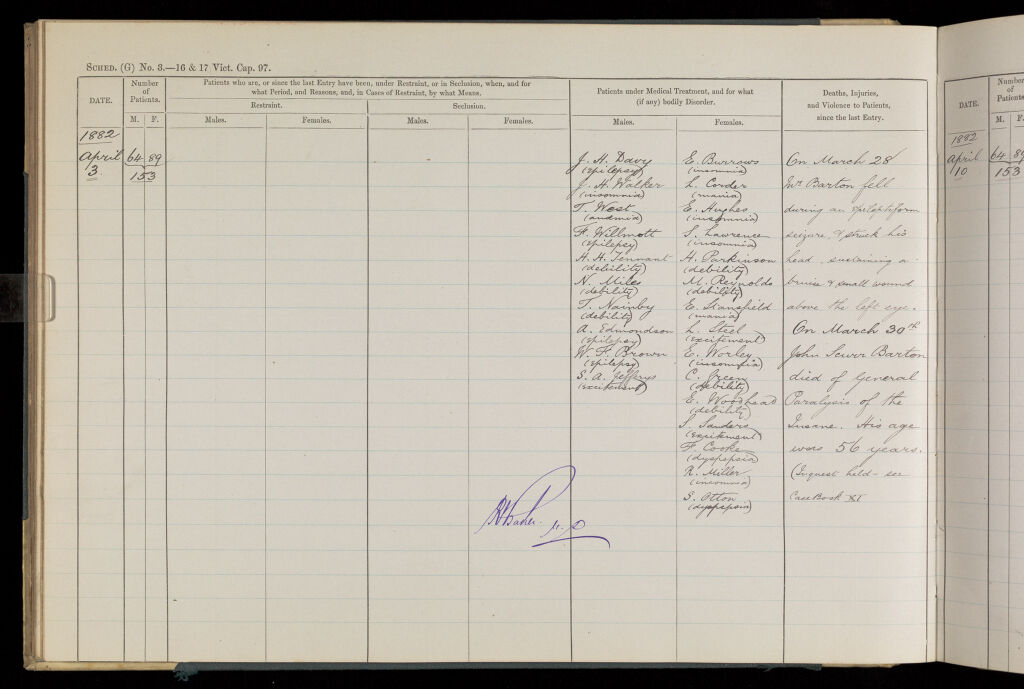 SCHED. (G) No. 3.—16 & 17 Vict. Cap. 97.
DATE.
Number
of
Patients.
M. F.
Patients who are, or since the last Entry have been, under Restraint, or in Seclusion, when, and for
what Period, and Reasons, and, in Cases of Restraint, by what Means.
Restraint.
Seclusion.
Males.
Females.
Males.
Females.
Patients under Medical Treatment, and for what
(if any) bodily Disorder.
Males.
Females.
Deaths, Injuries,
and Violence to Patients,
since the last Entry.
1882
April
3
64 89
153
J. H. Davy
(epilepsy)
J. H. Walker
(insomnia)
T. West
(anæmia)
F. Willmott
(epilepsy)
H. H. Tennant
(debility)
N. Miles
(debility)
T. Nainby
(debility)
A. Edmondson
(epilepsy)
W. F. Brown
(epilepsy)
S. A. Jefferys
(excitement)
E. Burrows
(insomnia)
L. Corder
(mania)
E. Hughes
(insomnia)
S. Lawrence
(insomnia)
H. Parkinson
(debility)
M. Reynolds
(debility)
E. Stansfield
(mania)
L. Steel
(excitement)
E. Worley
(insomnia)
C. Green
(debility)
E. Woodhead
(debility)
S. Sanders
(excitement)
F. Cooke
(dyspepsia)
R. Miller
(insomnia)
S. Otton
(dyspepsia)
On March 28
Mr Barton fell
during an epileptiform
seizure, & struck his
head, sustaining a
bruise & small wound
above the left eye.
On March 30th
John Barton
died of General
Paralysis of the
Insane. His age
was 56 years.
(Inquest held - see
Case Book XI
DATE.
Number
of
Patients
M. F.
1882
April
10
64 89
153